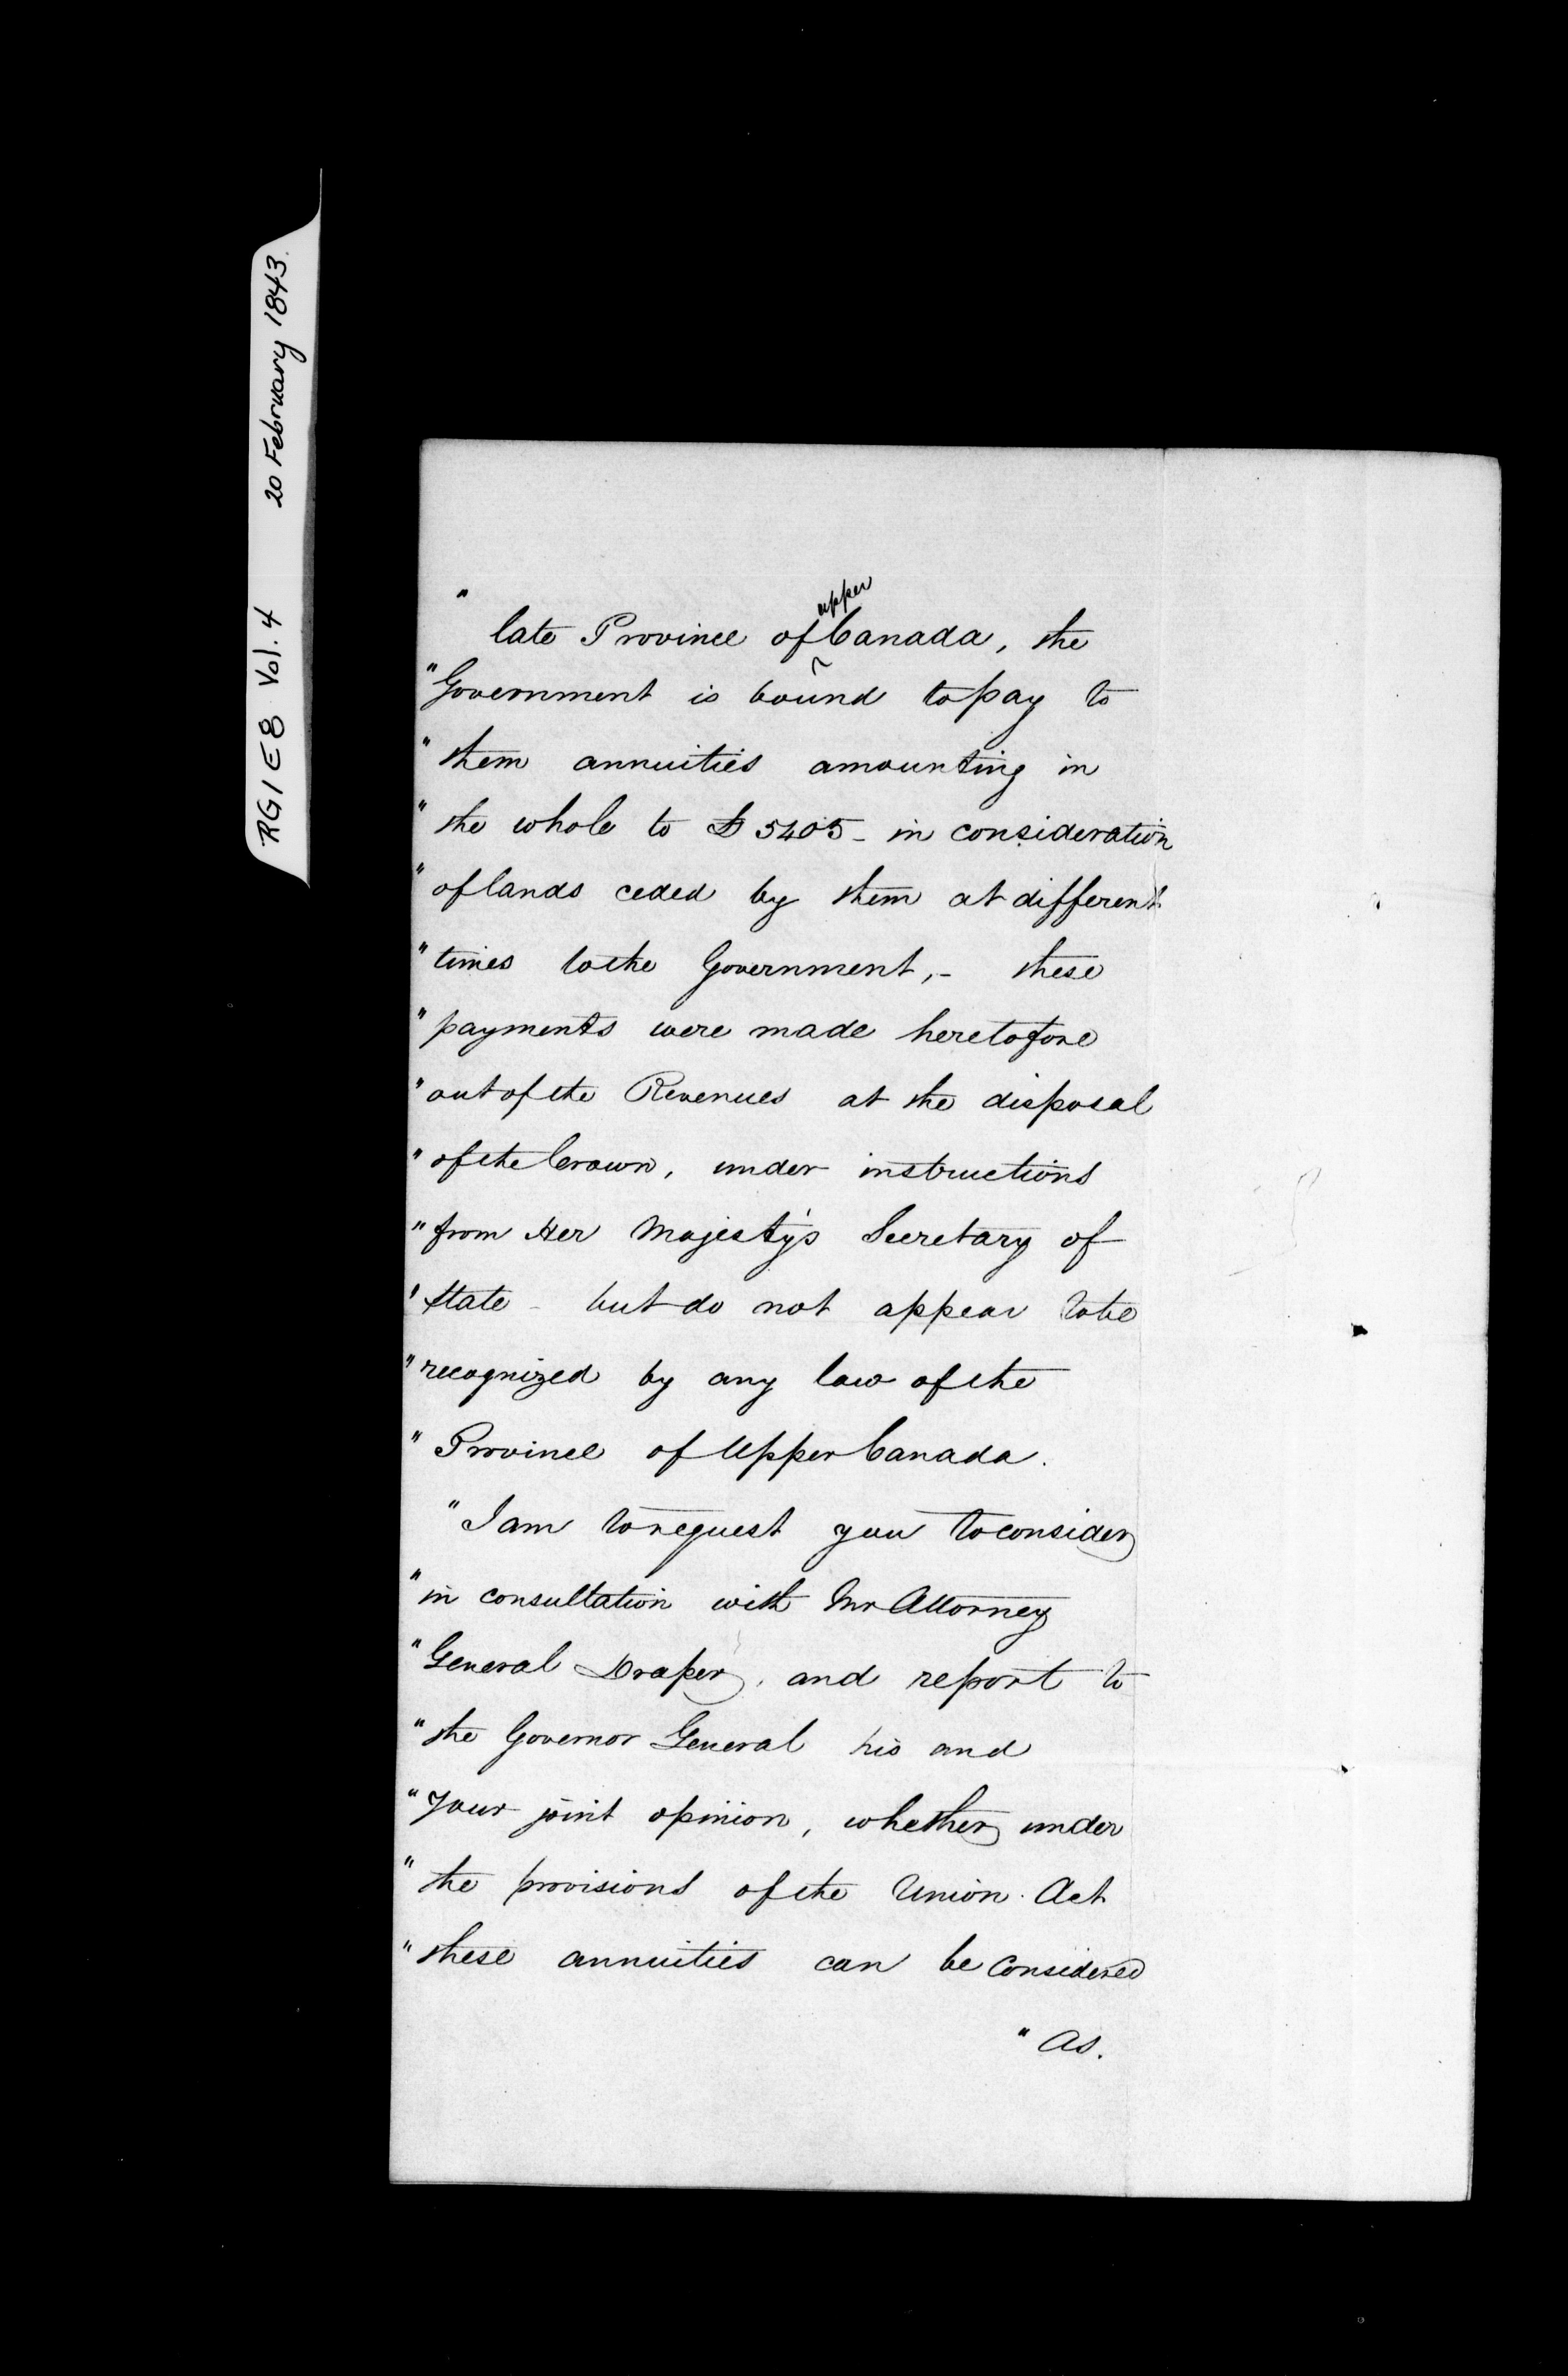 RG1 E8 Vol. 4 20 February 1843.
" late Province of ^upper Canada, the
" Government is bound to pay to
" them annuities amounting in
" the whole to £ 5405 - in consideration
" of lands ceded by them at different
" times to the Government, - these
" payments were made heretofore
" out of the Revenues at the disposal
" of the Crown, under instructions
" from Her Majesty's Secretary of
" State - but do not appear to be
" recognized by any law of the
" Province of Upper Canada.
" I am to request you to consider
" in consultation with Mr Attorney
" General Draper, and report to
" the Governor General his and
" your joint opinion, whether under
" the provisions of the Union Act
" these annuities can be considered
" As.